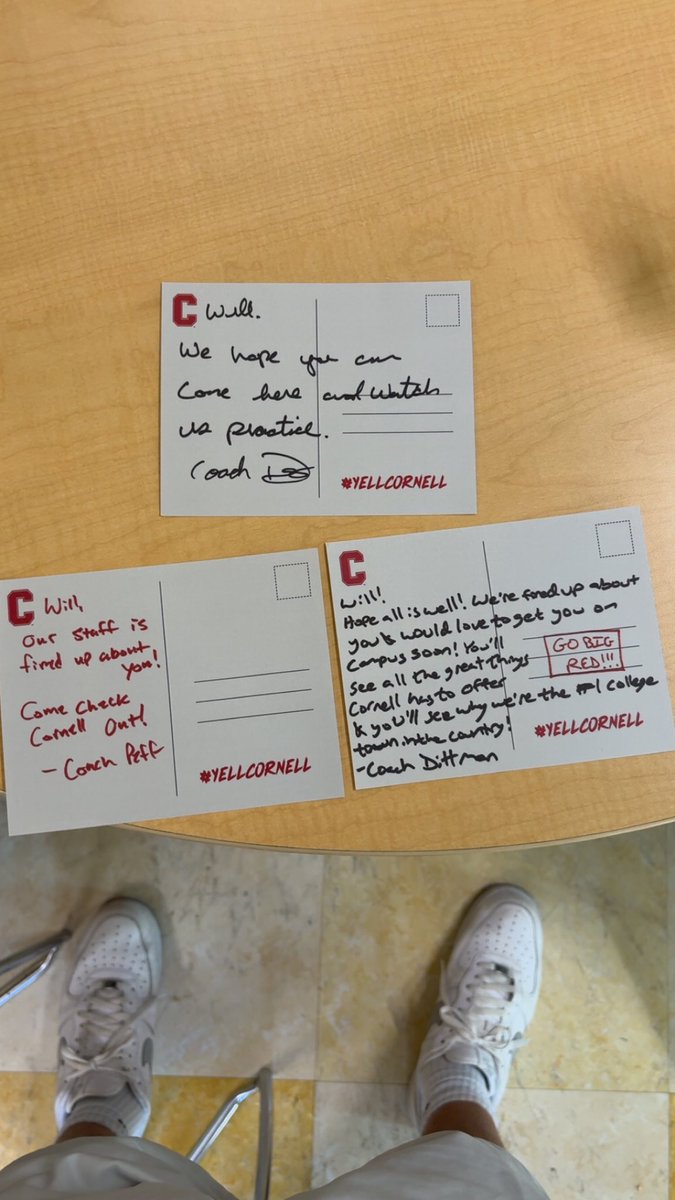 C Will.
We hope you can
Come here and Watch
us practice.
Coach
#YELLCORNELL
C Will,
Our staff is
fired up about
you!
Come Check
Cornell Out!
- Coach Peff
#YELLCORNELL
C
Will!
Hope all is well! We're fired up about
you & would love to get you on
campus soon! You'll
see all the great things
Cornell has to offer
& you'll see why we're the #1 college
town in the country!
- Coach Dittman
GO BIG
RED!!!
#YELLCORNELL